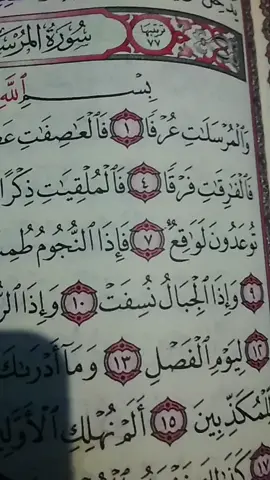 سُورَةُ المُرْسَ
ترتيبها ٧٧
بِسْمِ ٱللَّهِ
وَٱلْمُرْسَلَٰتِ عُرْفًا ١ فَٱلْعَٰصِفَٰتِ عَصْ
فَٱلْفَٰرِقَٰتِ فَرْقًا ٤ فَٱلْمُلْقِيَٰتِ ذِكْرًا
تُوعَدُونَ لَوَٰقِعٌ ٧ فَإِذَا ٱلنُّجُومُ طُمِسَ
٩ وَإِذَا ٱلْجِبَالُ نُسِفَتْ ١٠ وَإِذَا ٱلرُّ
١٢ لِيَوْمِ ٱلْفَصْلِ ١٣ وَمَآ أَدْرَىٰكَ
لِّلْمُكَذِّبِينَ ١٥ أَلَمْ نُهْلِكِ ٱلْأَوَّلِي
١٧ كَذَٰلِكَ نَفْعَلُ